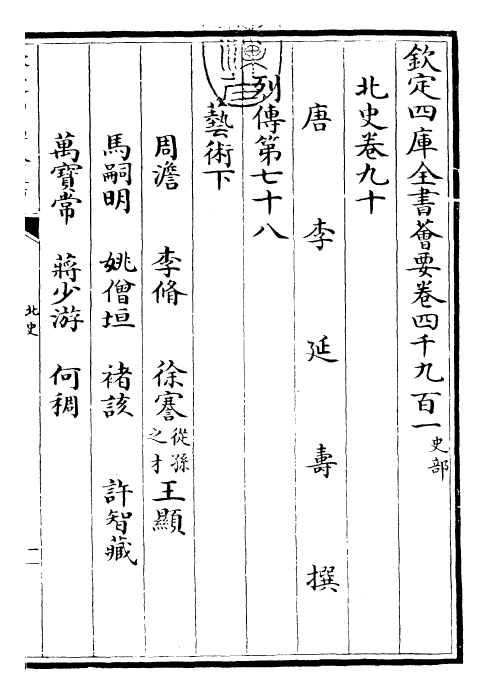 欽定四庫全書薈要卷四千九百一 史部
北史卷九十
唐 李 延 壽 撰
列傳第七十八
藝術下
周澹 李脩 徐謇 從孫之才 王顯
馬嗣明 姚僧垣 禇該 許智藏
萬寶常 蔣少游 何稠
北史
一